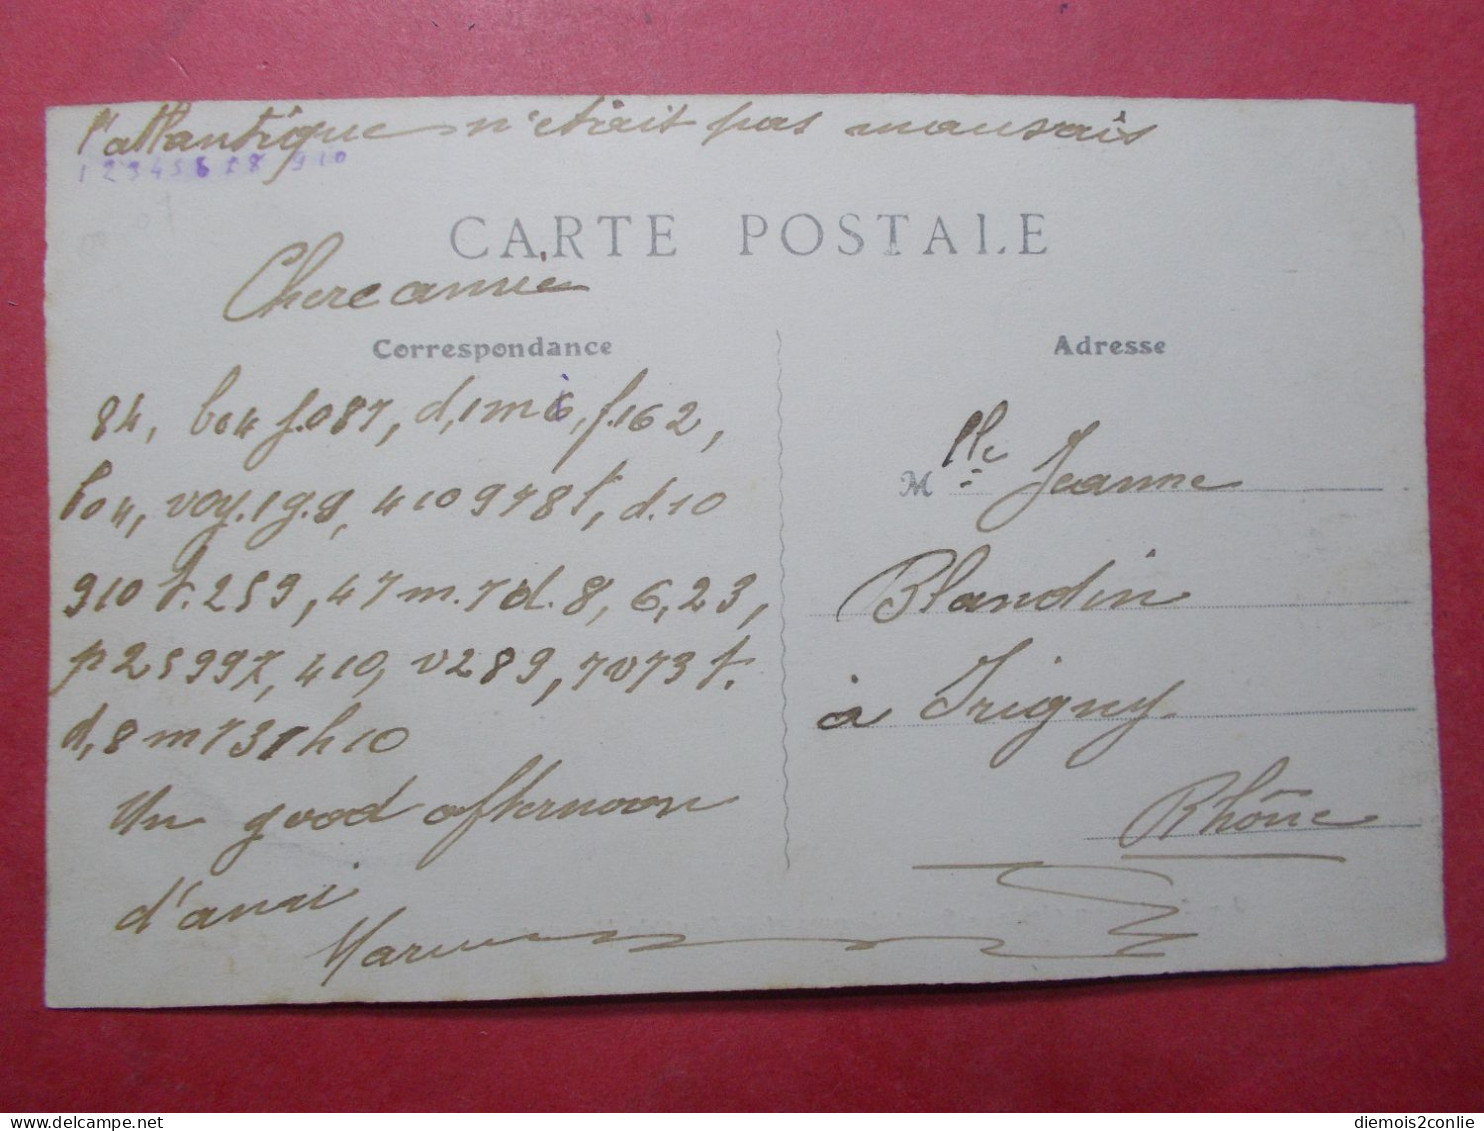 l'atlantique n'était pas mauvais
1 2 3 4 5 6 7 8 9 10
CARTE POSTALE
Chere amie
Correspondance
Adresse
84, bo4 f.087, d,1m6, f.162,
bo4, voy.1g.9, 410978t, d.10
910 t.259, 47m.7d.8, 6,23,
p25997, 410, v289, 7v73t.
d,8m737h10
Un good afternoon
d'ami
Mlle Jeanne
Blandin
à Irigny
Rhône
diemois2conlie